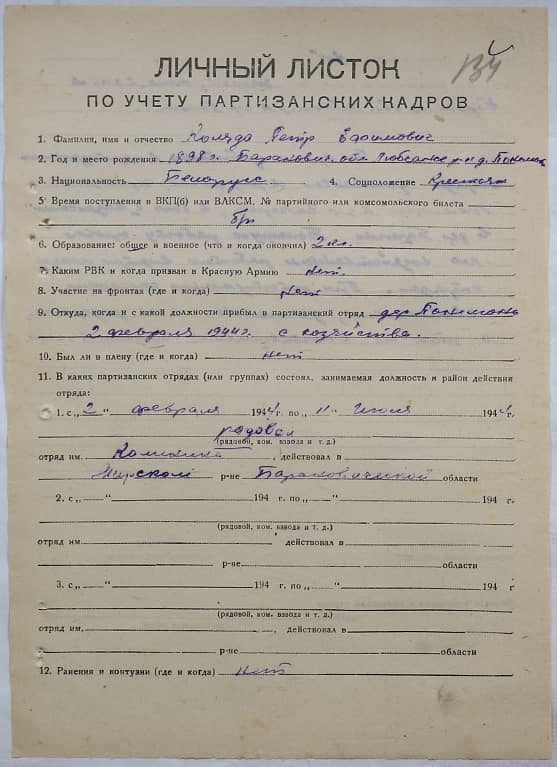 134
ЛИЧНЫЙ ЛИСТОК
ПО УЧЕТУ ПАРТИЗАНСКИХ КАДРОВ
1. Фамилия, имя и отчество Коляда Петр Ефимович
2. Год и место рождения 1898 г. Баранович. обл. р-н д.
3. Национальность Белорусс 4. Соцположение Крестьян
5. Время поступления в ВКП(б) или ВЛКСМ, № партийного или комсомольского билета
б/п
6. Образование: общее и военное (что и когда окончил) 2 кл.
7. Каким РВК и когда призван в Красную Армию нет
8. Участие на фронтах (где и когда) нет
9. Откуда, когда и с какой должности прибыл в партизанский отряд дер.
2 февраля 1944 г. с хозяйства.
10. Был ли в плену (где и когда) нет
11. В каких партизанских отрядах (или группах) состоял, занимаемая должность и район действия
отряда:
1. с „2" февраля 1944 г. по „11" июля 1944 г.
рядовой
(рядовой, ком. взвода и т. д.)
отряд им. Калинина, действовал в
Мирском р-не Барановичской области
2. с „ " 194 г. по „ " 194 г.
(рядовой, ком. взвода и т. д.)
отряд им. действовал в
р-не области
3. с „ " 194 г. по „ " 194 г.
(рядовой, ком. взвода и т. д.)
отряд им. , действовал в
р-не области
12. Ранения и контузии (где и когда) нет